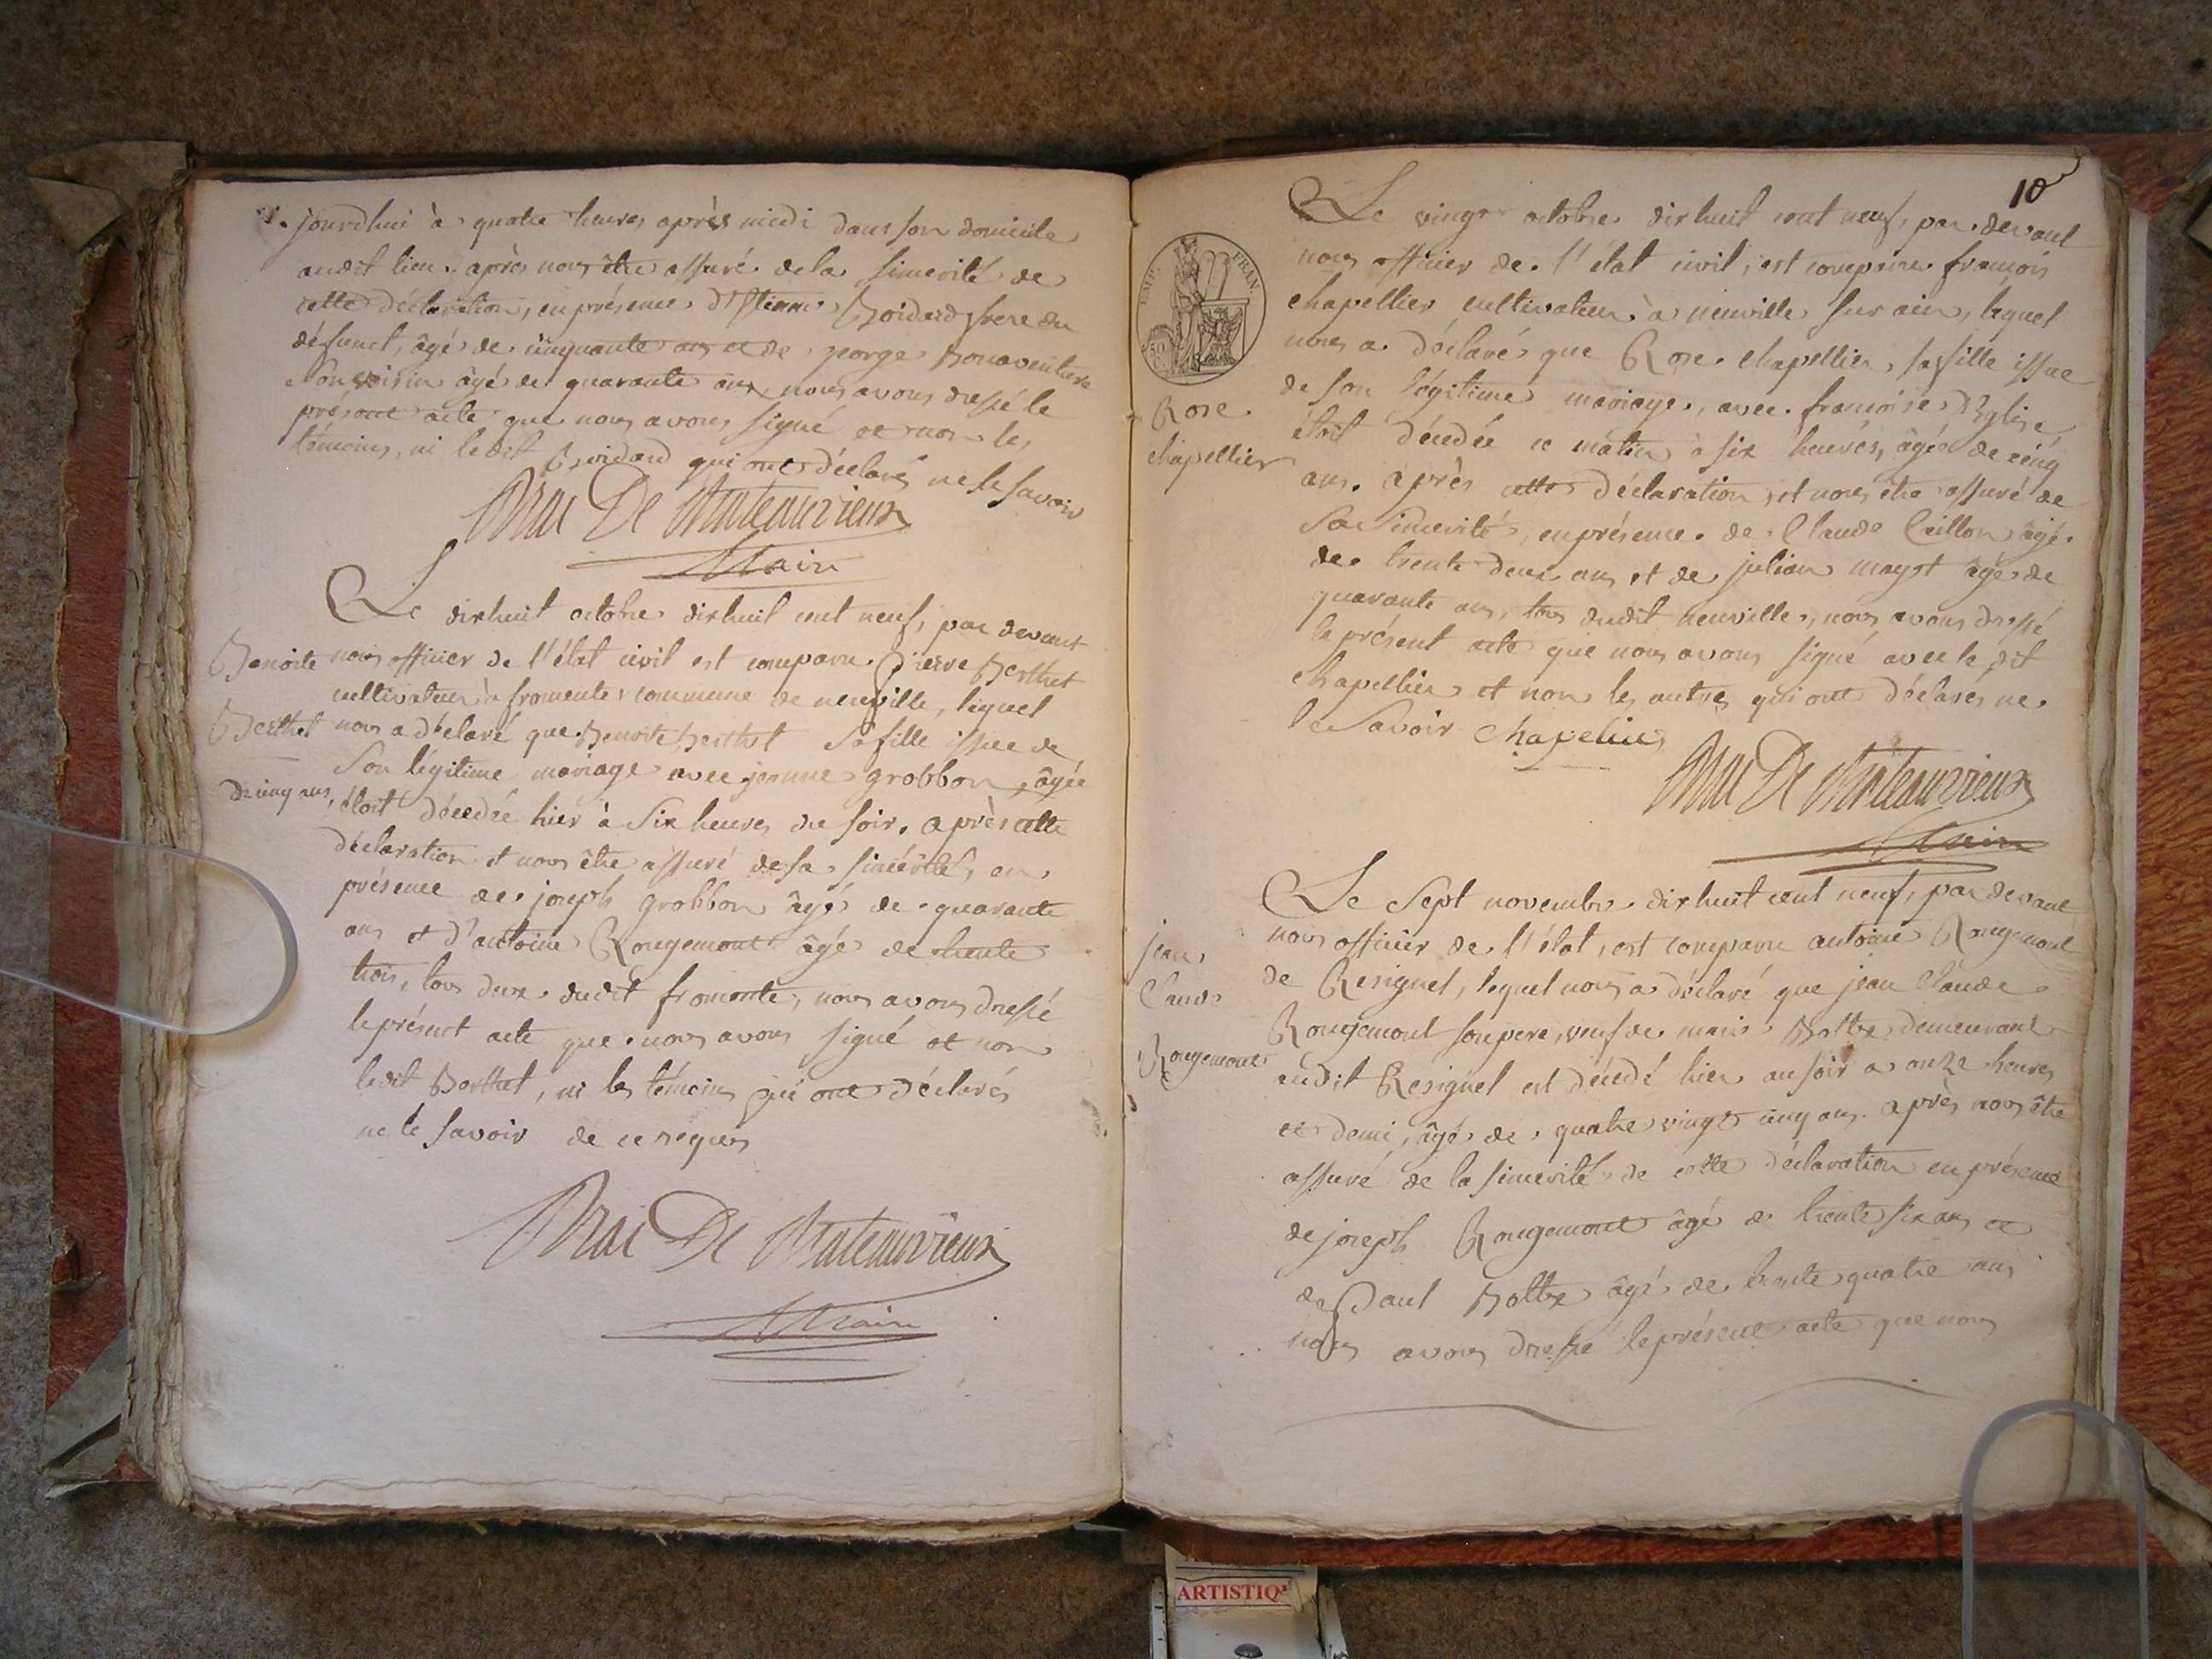 jourdhui à quatre heures après midi dans son domicile
audit lieu. après nous être assuré de la sincerité de
cette déclaration, en présence d'Etienne Boidard frere du
défunct, âgé de cinquante ans et de george Bonaventure
son voisin âgé de quarante ans, nous avons dressé le
présent acte que nous avons signé et non les
témoins, ni le dit Boidard qui ont déclarés ne le savoir
Brac De Chateauvieux
Maire
Le dixhuit octobre dixhuit cent neuf, par devant
Benoite
nous officier de l'état civil est comparu Pierre Berthet
cultivateur à fromente commune de neuville, lequel
Berthet
nous a déclaré que Benoite Berthet sa fille issue de
son légitime mariage avec jeanne grobbon, âgée
de cinq ans,
étoit décédée hier à six heures du soir. après cette
déclaration et nous être assuré de sa sincérité, en
présence de joseph grobbon âgé de quarante
ans et d'antoine Rougemont âgé de trente
trois, tous deux dudit fromente, nous avons dressé
le présent acte que nous avons signé et non
ledit Berthet, ni les témoins qui ont déclarés
ne le savoir de ce requis
Brac De Chateauvieux
Maire
10
Le vingt octobre dixhuit cent neuf, par devant
nous officier de l'état civil, est comparu françois
chapellier cultivateur à neuville sur ain, lequel
nous a déclaré que Rose chapellier, sa fille issue
de son légitime mariage, avec francoise Eglise
étoit décédée ce matin à six heures, âgée de cinq
ans. après cette déclaration, et nous être assuré de
sa sincerité, en présence de Claude Caillon âgé
de trente deux ans et de julian mayot âgé de
quarante ans, tous dudit neuville, nous avons dressé
le présent acte que nous avons signé avec le dit
chapellier et non les autres qui ont déclarés ne
le savoir chapelier
EMP. FRAN.
Rose
chapellier
Brac De Chateauvieux
Maire
Le sept novembre dixhuit cent neuf, par devant
nous officier de l'état, est comparu antoine Rougemont
de Resignel, lequel nous a déclaré que jean Claude
Rougemont son pere, veuf de marie Boltze demeurant
audit Resignel est décédé hier au soir a onze heures
et demi, âgé de quatre vingt cinq ans. après nous être
assuré de la sincerité de cette déclaration en présence
de joseph Rougemont âgé de trente six ans et
de Paul Boltze âgé de trente quatre ans
nous avons dressé le présent acte que nous
jean
Claude
Rougemont
ARTISTIQ